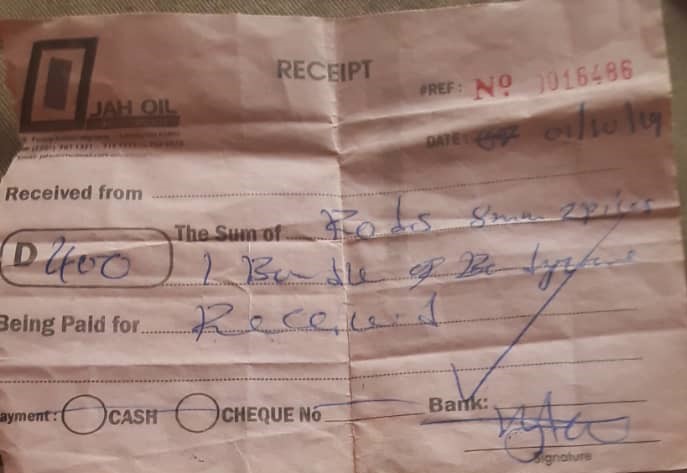 RECEIPT
JAH OIL
#REF: Nº 0016486
DATE: 01/10/19
Received from
The Sum of Rods 8mm 2 pices
D 400
1 Bundle of
Being Paid for Received
ayment: CASH CHEQUE No Bank:
Signature